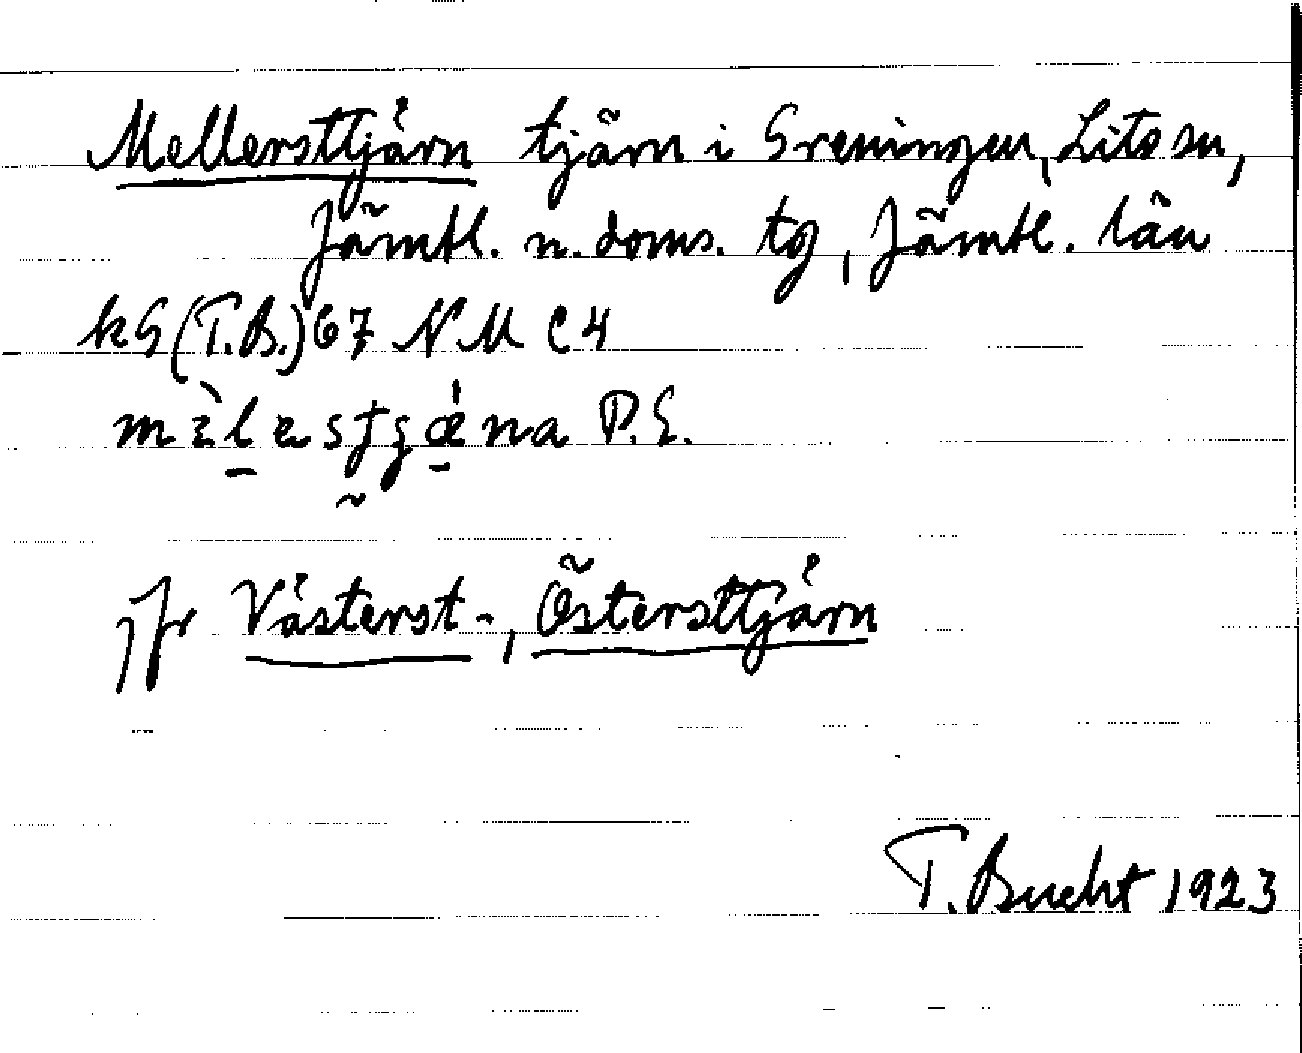 Mellersttjärn tjärn i Greningen, Lits sn,
Jämtl. n. doms. tg, Jämtl. län
kG (T.B.) 67 NM C4
P.E.
jfr Västerst-, Östersttjärn
T. Bucht 1923